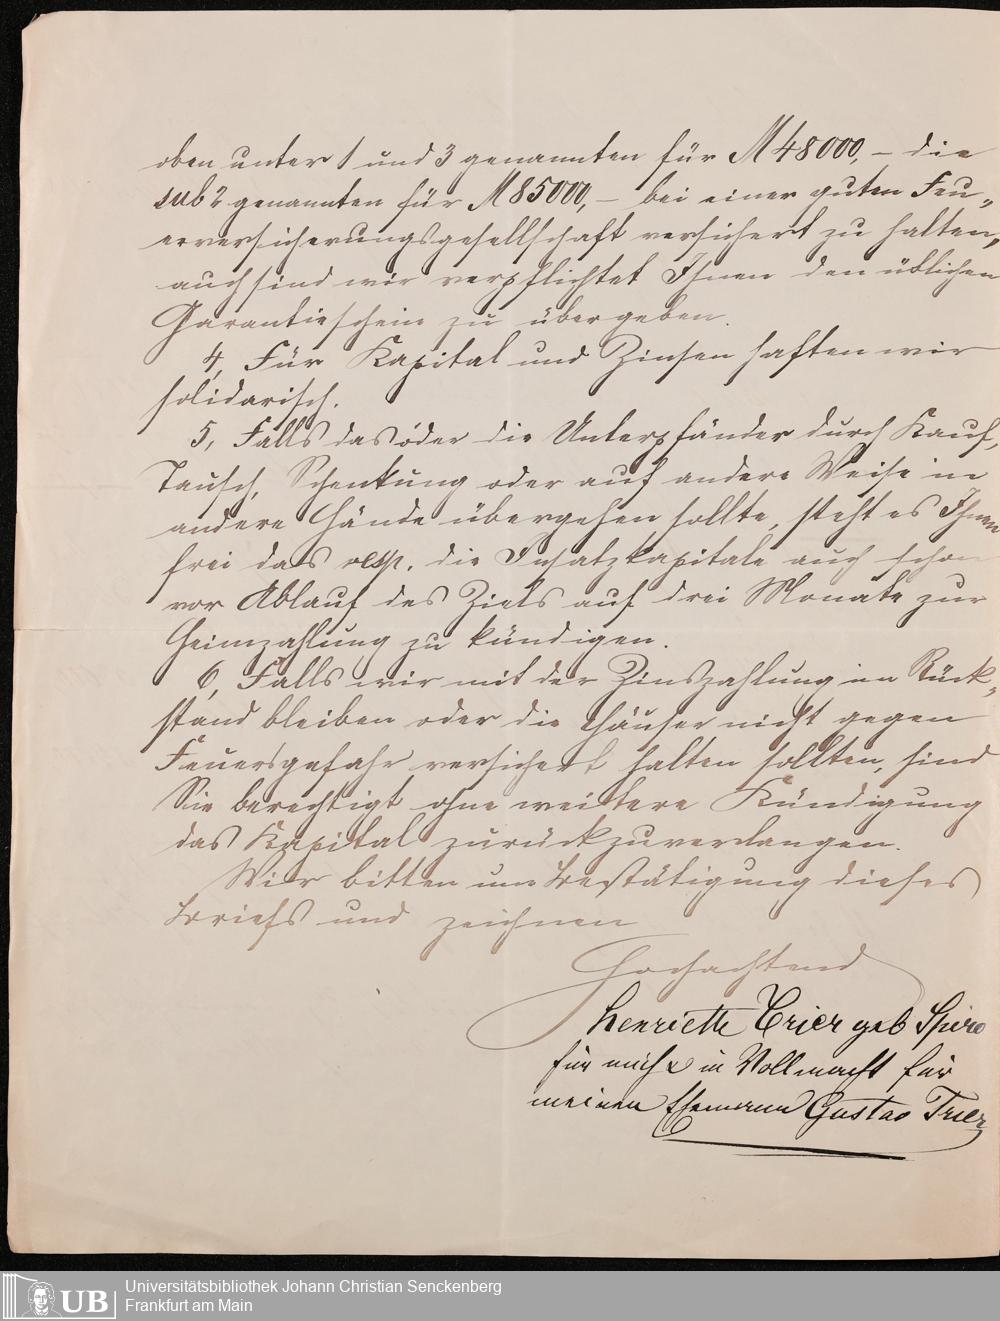 oben unter 1 und 3 genannten für M 48000,– die
sub 2 genannten für M 85000,– bei einer guten Feu„
erversicherungsgesellschaft versichert zu halten,
auch sind wir verpflichtet Ihnen den üblichen
Garantieschein zu übergeben.
4, Für Kapital und Zinsen haften wir
solidarisch.
5, Falls das oder die Unterpfänder durch Kauf,
Tausch, Schenkung oder auf andere Weise in
andere Hände übergehen sollte, steht es Ihnen
frei das resp. die Insatzkapitale auch schon
vor Ablauf des Ziels auf drei Monate zur
Heimzahlung zu kündigen.
6, Falls wir mit der Zinszahlung im Rück„
stand bleiben oder die Häuser nicht gegen
Feuersgefahr versichert halten sollten, sind
Sie berechtigt ohne weitere Kündigung
das Kapital zurückzuverlangen.
Wir bitten um Bestätigung dieses
Briefs und zeichnen
Hochachtend
Henriette Trier geb Spiro
für mich & in Vollmacht für
meinen Ehemann Gustav Trier
UB
Universitätsbibliothek Johann Christian Senckenberg
Frankfurt am Main